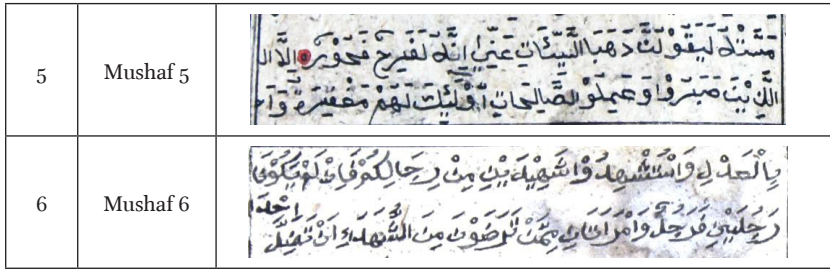 5 Mushaf 5
مَسَّتْهُ لَيَقُوْلَنَّ ذَهَبَ السَّيِّئَاتِ عَنِّي إِنَّهُ لَفَرِحٌ فَخُوْرٌ إِلَّا ال
الَّذِيْنَ صَبَرُوا وَعَمِلُو الصَّالِحَاتِ أُولَئِكَ لَهُمْ مَغْفِرَةٌ وَاج
6 Mushaf 6
بِالْعَدْلِ وَاسْتَشْهِدُوْا شَهِيْدَيْنِ مِنْ رِجَالِكُمْ فَإِنْ لَمْ يَكُوْنَا
رَجُلَيْنِ فَرَجُلٌ وَامْرَأَتَانِ مِمَّنْ تَرْضَوْنَ مِنَ الشُّهَدَاءِ اَنْ تَضِلَّ